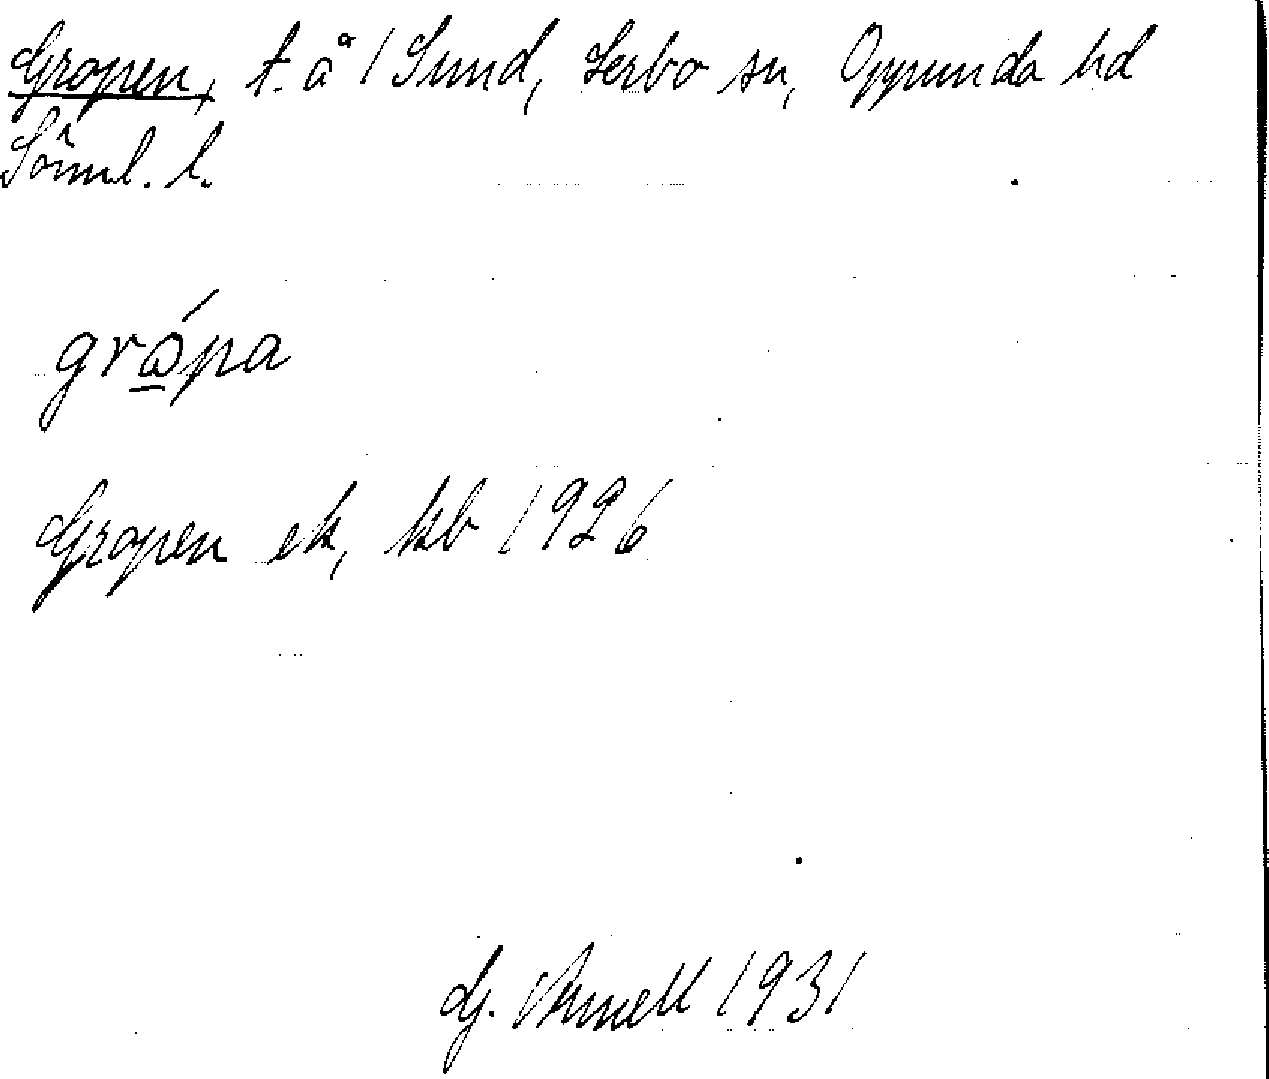 Gropen, t. å 1 Sund, Lerbo sn, Oppunda hd
Söml. l.
grópa
Gropen ek, kb 1926
G. Arnell 1931